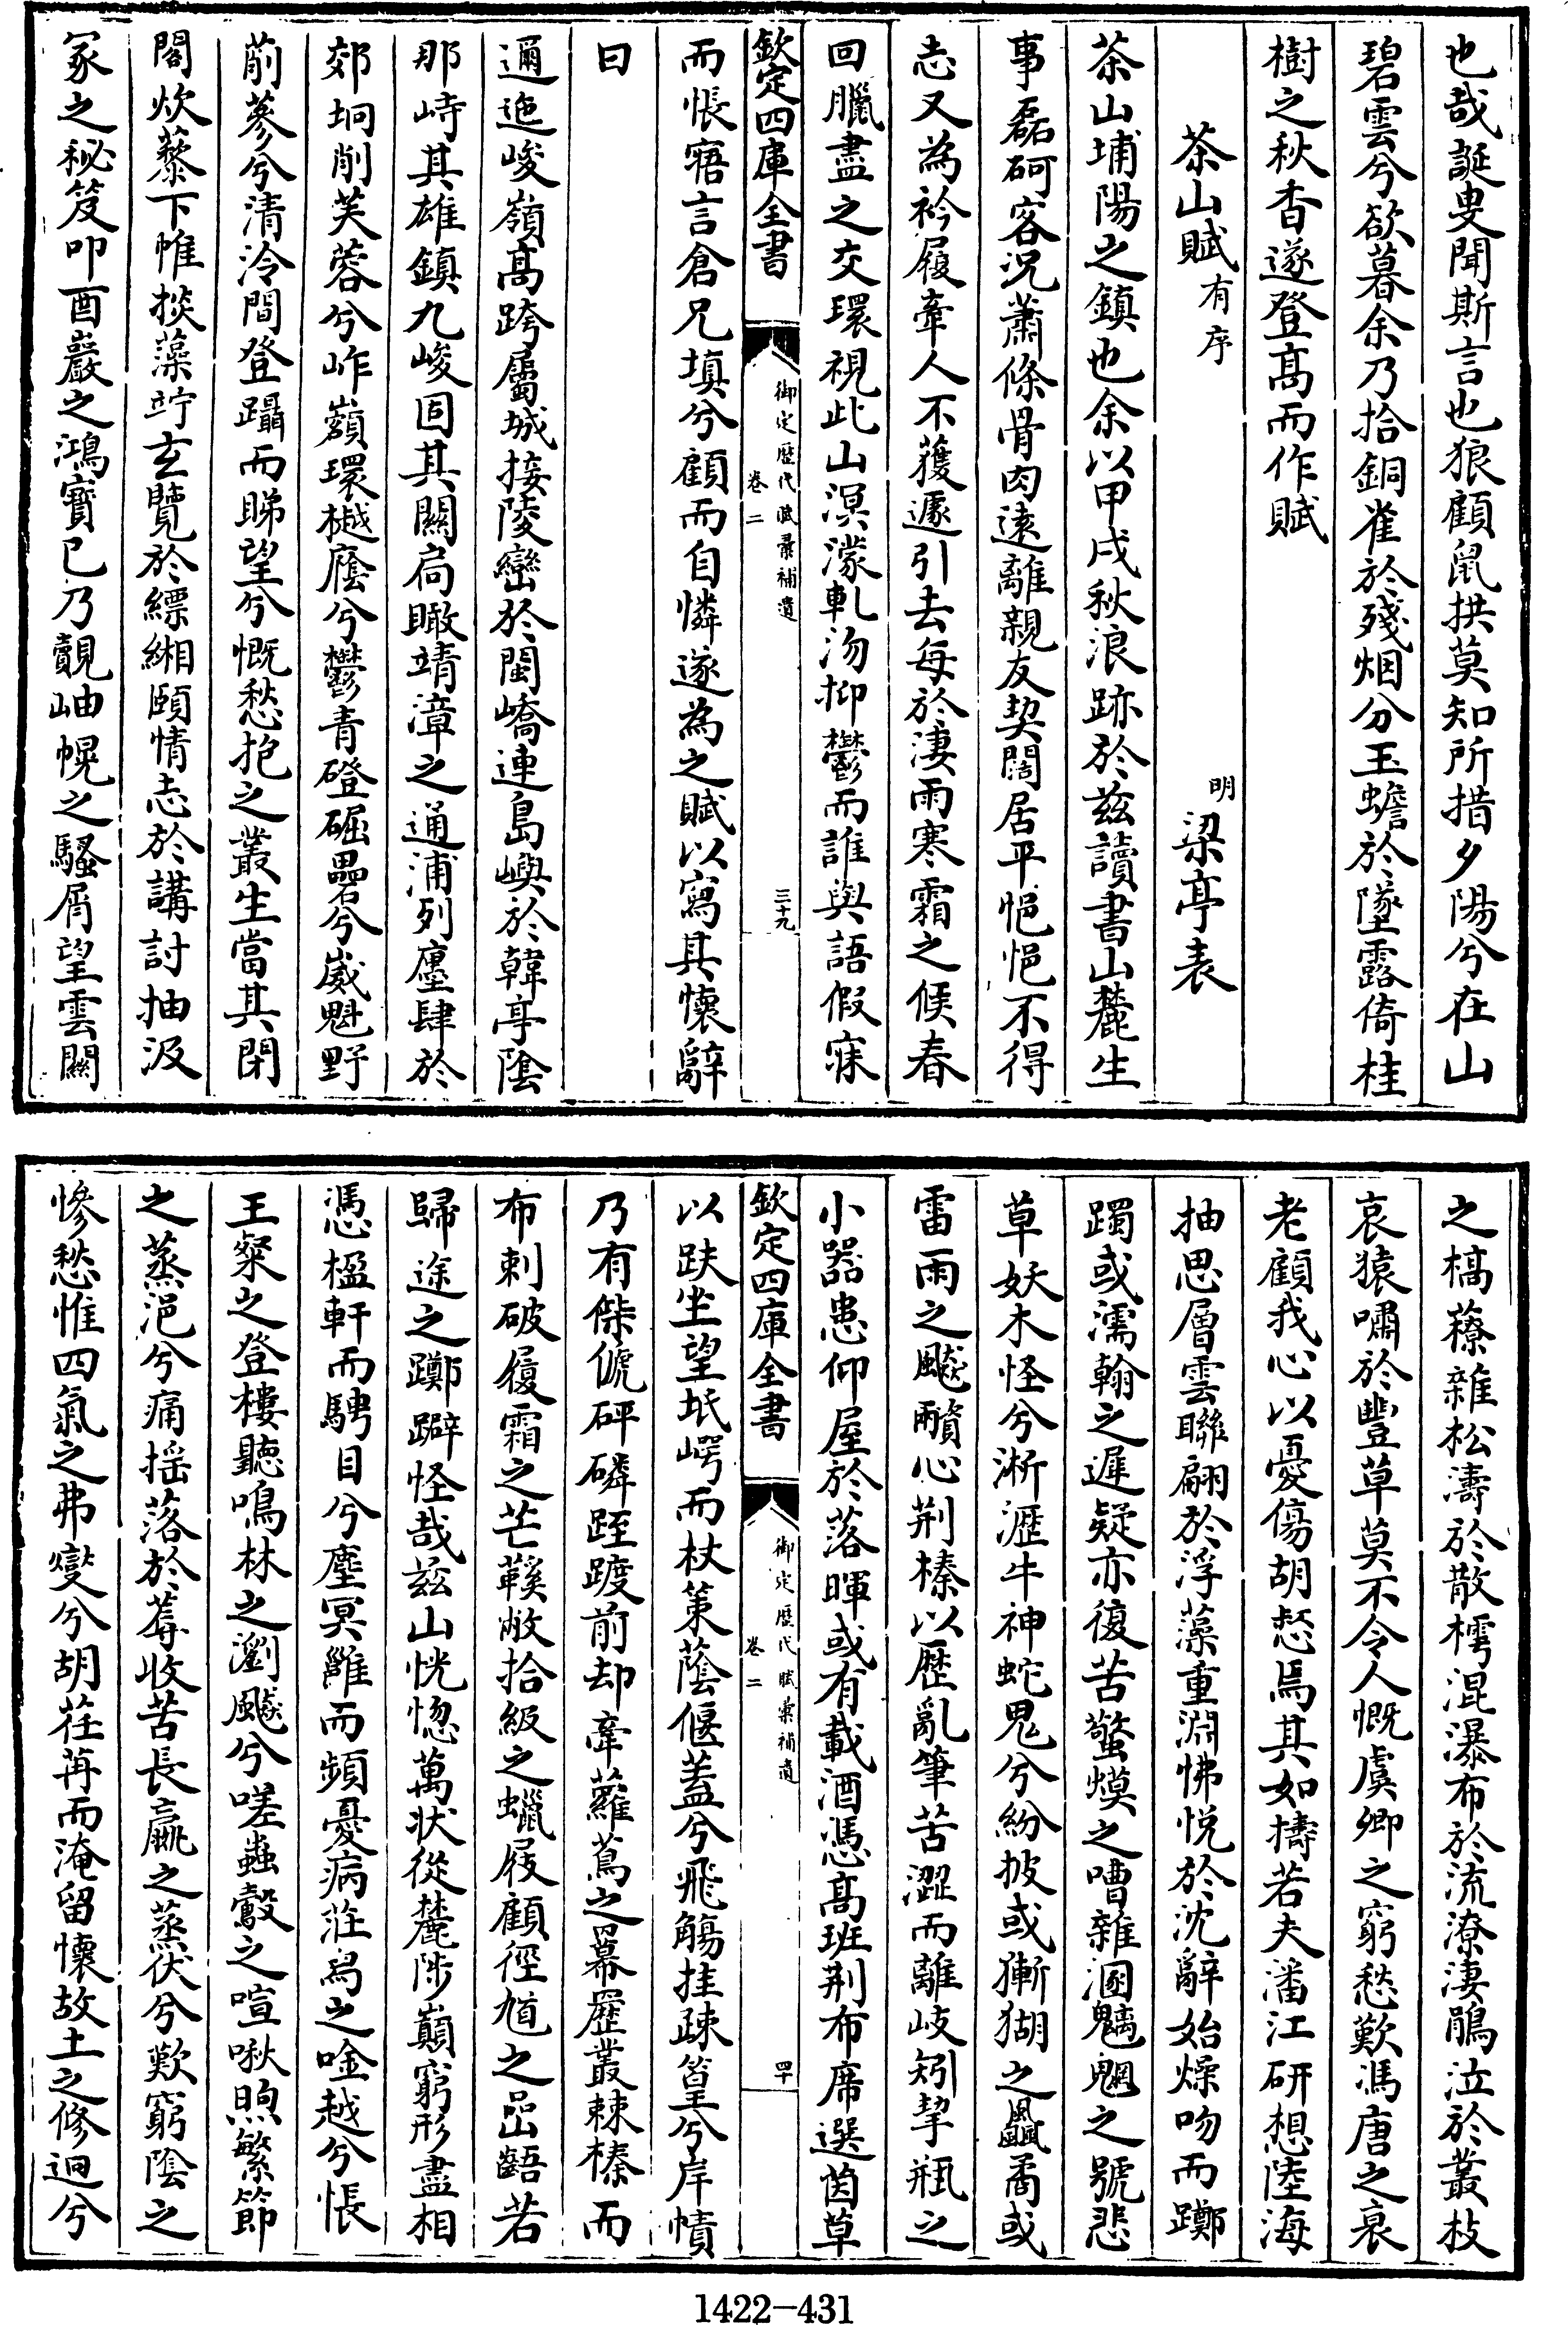 也哉誕叟聞斯言也狼顧鼠拱莫知所措夕陽兮在山
碧雲兮欲暮余乃拾銅雀於殘烟分玉蟾於墜露倚桂
樹之秋香遂登高而作賦
茶山賦有序
明梁亭表
茶山埔陽之鎮也余以甲戌秋浪跡於兹讀書山麓生
事磊砢客況蕭條骨肉逺離親友契闊居平悒悒不得
志又為衿履牽人不獲遽引去每於淒雨寒霜之候春
回臘盡之交環視此山溟濛軋沕抑鬱而誰與語假寐
欽定四庫全書
御定歷代賦彙補遺
卷二
三十九
而悵寤言倉兄填兮顧而自憐遂為之賦以寫其懷辭
曰
邇迤峻嶺高跨屬城接陵巒於閩嶠連島嶼於韓亭陰
那峙其雄鎮九峻固其關扃瞰靖漳之通浦列廛肆於
郊坰削芙蓉兮岞嶺環樾廕兮鬱青磴硊礨兮崴魁野
萷蔘兮清泠間登躡而睇望兮慨愁抱之叢生當其閉
閣炊藜下帷掞藻竚玄覽於縹緗頤情志於講討抽汲
冢之秘笈叩酉巖之鴻寶已乃覿岫幌之騷屑望雲關
之槁䕩雜松濤於散樗混瀑布於流潦淒鵑泣於叢枝
哀猿嘯於豐草莫不令人慨虞卿之窮愁歎馮唐之衰
老顧我心以憂傷胡惄焉其如擣若夫潘江研想陸海
抽思層雲聯翩於浮藻重淵怫悅於沈辭始燥吻而躑
躅或濡翰之遲疑亦復苦螫𤡮之嘈雜溷魑魍之號悲
草妖木怪兮淅瀝牛神蛇鬼兮紛披或獑猢之飍矞或
雷雨之颷霣心荆榛以歷亂筆苦澀而離岐矧挈瓶之
小器患仰屋於落暉或有載酒憑高班荆布席選茵草
欽定四庫全書
御定歷代賦彙補遺
卷二
四十
以趺坐望坻崿而杖策蔭偃蓋兮飛觴挂疎篁兮岸幘
乃有傑傂砰磷跮踱前却牽蘿蔦之羃䍥叢棘榛而
布刺破履霜之芒鞵敝拾級之蠟屐顧徑馗之嵒齬若
歸途之躑躃怪哉兹山恍惚萬狀從麓陟巔窮形盡相
憑楹軒而騁目兮塵冥雝而頻憂病莊舄之唫越兮悵
王粲之登樓聽鳴林之瀏颷兮嗟蟲鷇之喧啾煦繁節
之蒸浥兮痛揺落於蓐收苦長贏之蒸伏兮歎窮陰之
慘愁惟四氣之弗爕兮胡荏苒而淹留懷故土之修迥兮
1422-431